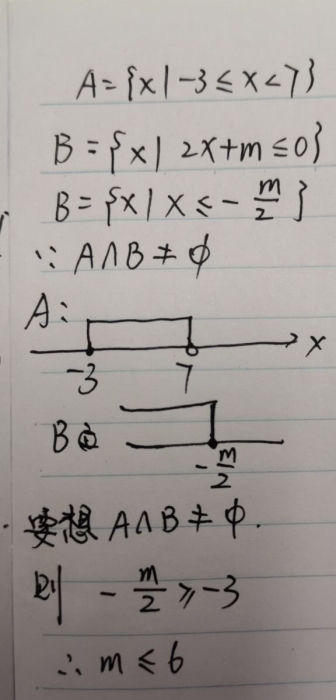 A={x|-3≤x<7}
B={x| 2x+m≤0}
B={x|x≤-m/2}
∵ A∩B≠φ
A:
x
-3 7
B
-m/2
要想 A∩B≠φ.
则 -m/2 ≥-3
∴ m≤6